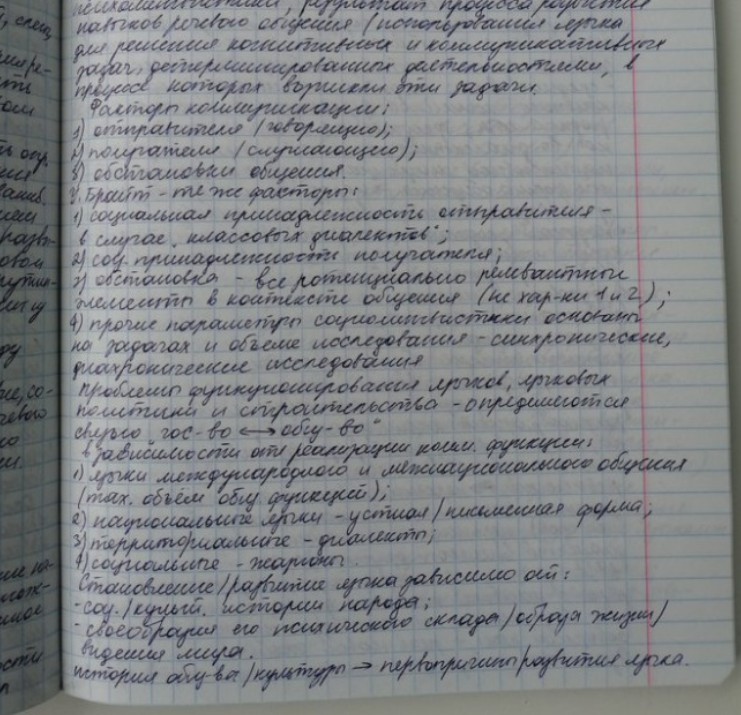 психолингвистики, результат процесса развития
навыков речевого общения / использования языка
для решения когнитивных и коммуникативных
задач, детерминированных деятельностями, в
процессе которых возникли эти задачи.
Факторы коммуникации:
1) отправителя / говорящего);
2) получателя / слушающего);
3) обстановки общения.
У. Брайт - те же факторы:
1) социальная принадлежность отправителя -
в случае „классовых диалектов";
2) соц. принадлежности получателя;
3) обстановка - все потенциально релевантные
элементы в контексте общения (не хар-ки 1 и 2);
4) прочие параметры социолингвистики основаны
на задачах и объеме исследования - синхронические,
диахронические исследования
Проблемы функционирования языков, языковых
политики и строительства - определяются
связью гос-во ⟷ общ-во"
в зависимости от реализации комм. функции:
1) языки международного и межнационального общения
(max. объем общ функций);
2) национальные языки - устная / письменная форма;
3) территориальные - диалекты;
4) социальные - жаргоны.
Становление / развитие языка зависимо от:
- соц. / культ. истории народа;
- своеобразия его психического склада / образа жизни /
видения мира.
история общ-ва / культуры → первопричины / развития языка.